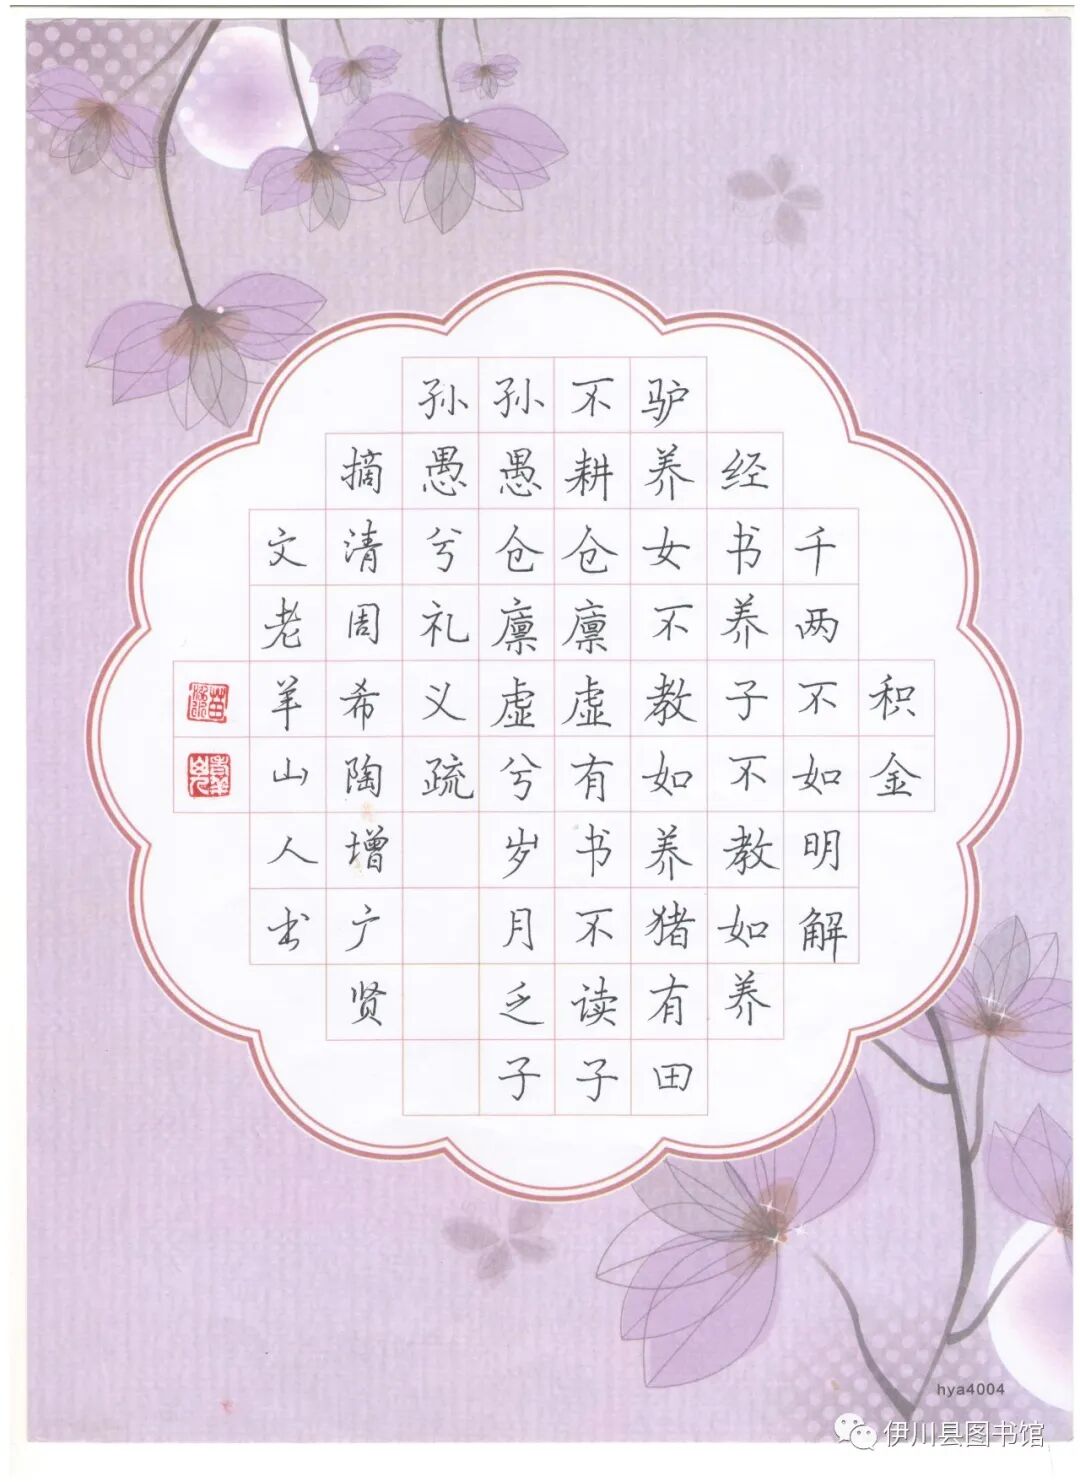 积金
千两不如明解
经书养子不教如养
驴养女不教如养猪有田
不耕仓廪虚有书不读子
孙愚仓廪虚兮岁月乏子
孙愚兮礼义疏
摘清周希陶增广贤
文老羊山人书
hya4004
伊川县图书馆